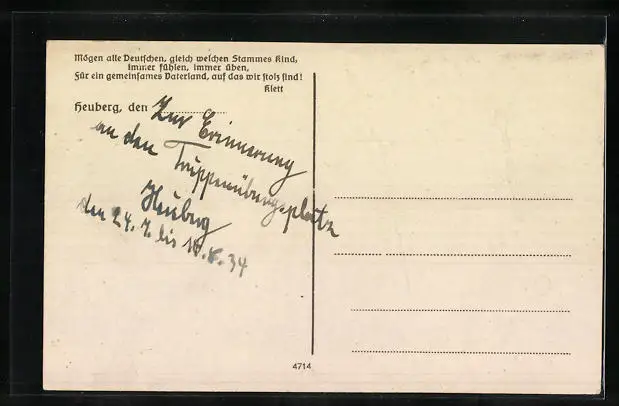 Mögen alle Deutschen, gleich welchen Stammes Kind,
immer fühlen, immer üben,
Für ein gemeinsames Vaterland, auf das wir stolz sind!
Klett
Heuberg, den
Zur Erinnerung
an den Truppenübungsplatz
Heuberg
den 24. 7. bis 34
4714